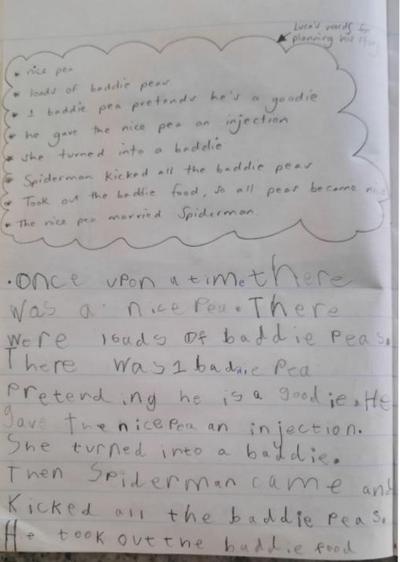 Luca's words for
planning his story
* nice pea
* loads of baddie peas
* 1 baddie pea pretends he's a goodie
* he gave the nice pea an injection
* she turned into a baddie
* Spiderman kicked all the baddie peas
* Took out the baddie food, so all peas became nice
* The nice pea married Spiderman.
.once upon a time there
was a nice Pea. There
were loads of baddie Peas.
There was 1 baddie Pea
Pretending he is a goodie. He
gave the nice Pea an injection.
She turned into a baddie.
Then Spiderman came and
Kicked all the baddie Peas.
He took out the baddie food